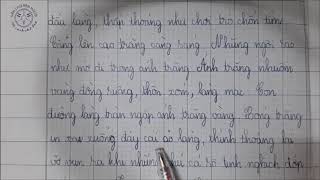 đầu làng, thấp thoáng như chơi trò chốn tìm.
Càng lên cao trăng càng sáng. Những ngôi sao
như mờ đi trong ánh trăng. Ánh trăng nhuốm
vàng dòng sông, thôn xóm, làng mạc. Con
đường làng tràn ngập ánh trăng vàng. Bóng trăng
in xuống đáy cái ao làng, thỉnh thoảng lại
vỡ ra khi những cá rô tinh nghịch đớp